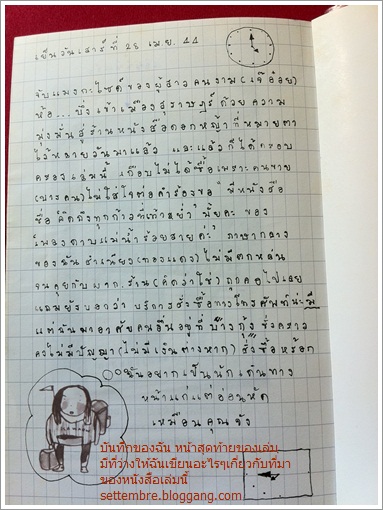 เย็นวันเสาร์ที่ 28 เม.ย. 44
จับแมงกะไซด์ของผู้สาวคนงาม (เจ๊อ๋อย)
ห้อ...บึ่งเข้าเมืองสุราษฎร์ด้วยความ
มุ่งมั่นสู่ร้านหนังสือดอกหญ้า ที่หมายตา
ไว้หลายวันมาแล้ว และแล้วก็ได้ครอบ
ครองเล่มนี้ เกือบไม่ได้ซื้อเพราะคนขาย
(บางคน) ไม่ใส่ใจต่อคำร้องขอ "มีหนังสือ
ชื่อ คิดถึงทุกก้าวที่เท้าย่ำ มั้ยคะ ของ
เพลงดาบแม่น้ำร้อยสายค่ะ" ภาษากลาง
ของฉันสำเนียง (ทองแดง) ไม่มีตกหล่น
จนคุยกับ ผจก. ร้าน (คิดว่าใช่) ถูกคอไปเลย
แถมยังบอกว่า บริการสั่งซื้อทางโทรศัพท์น่ะมี
แต่ฉันมาอาศัยคนอื่นอยู่ที่ บ้างกุ้ง ชั่วคราว
คงไม่มีปัญญา (ไม่มีเงินต่างหาก) สั่งซื้อหรอก
ฉันอยากเป็นนักเดินทาง
หน้าแก่แต่อ่อนหัด
เหมือนคุณจัง
บันทึกของฉัน หน้าสุดท้ายของเล่ม
มีที่ว่างให้ฉันเขียนอะไรๆเกี่ยวกับที่มา
ของหนังสือเล่มนี้
settembre.bloggang.com